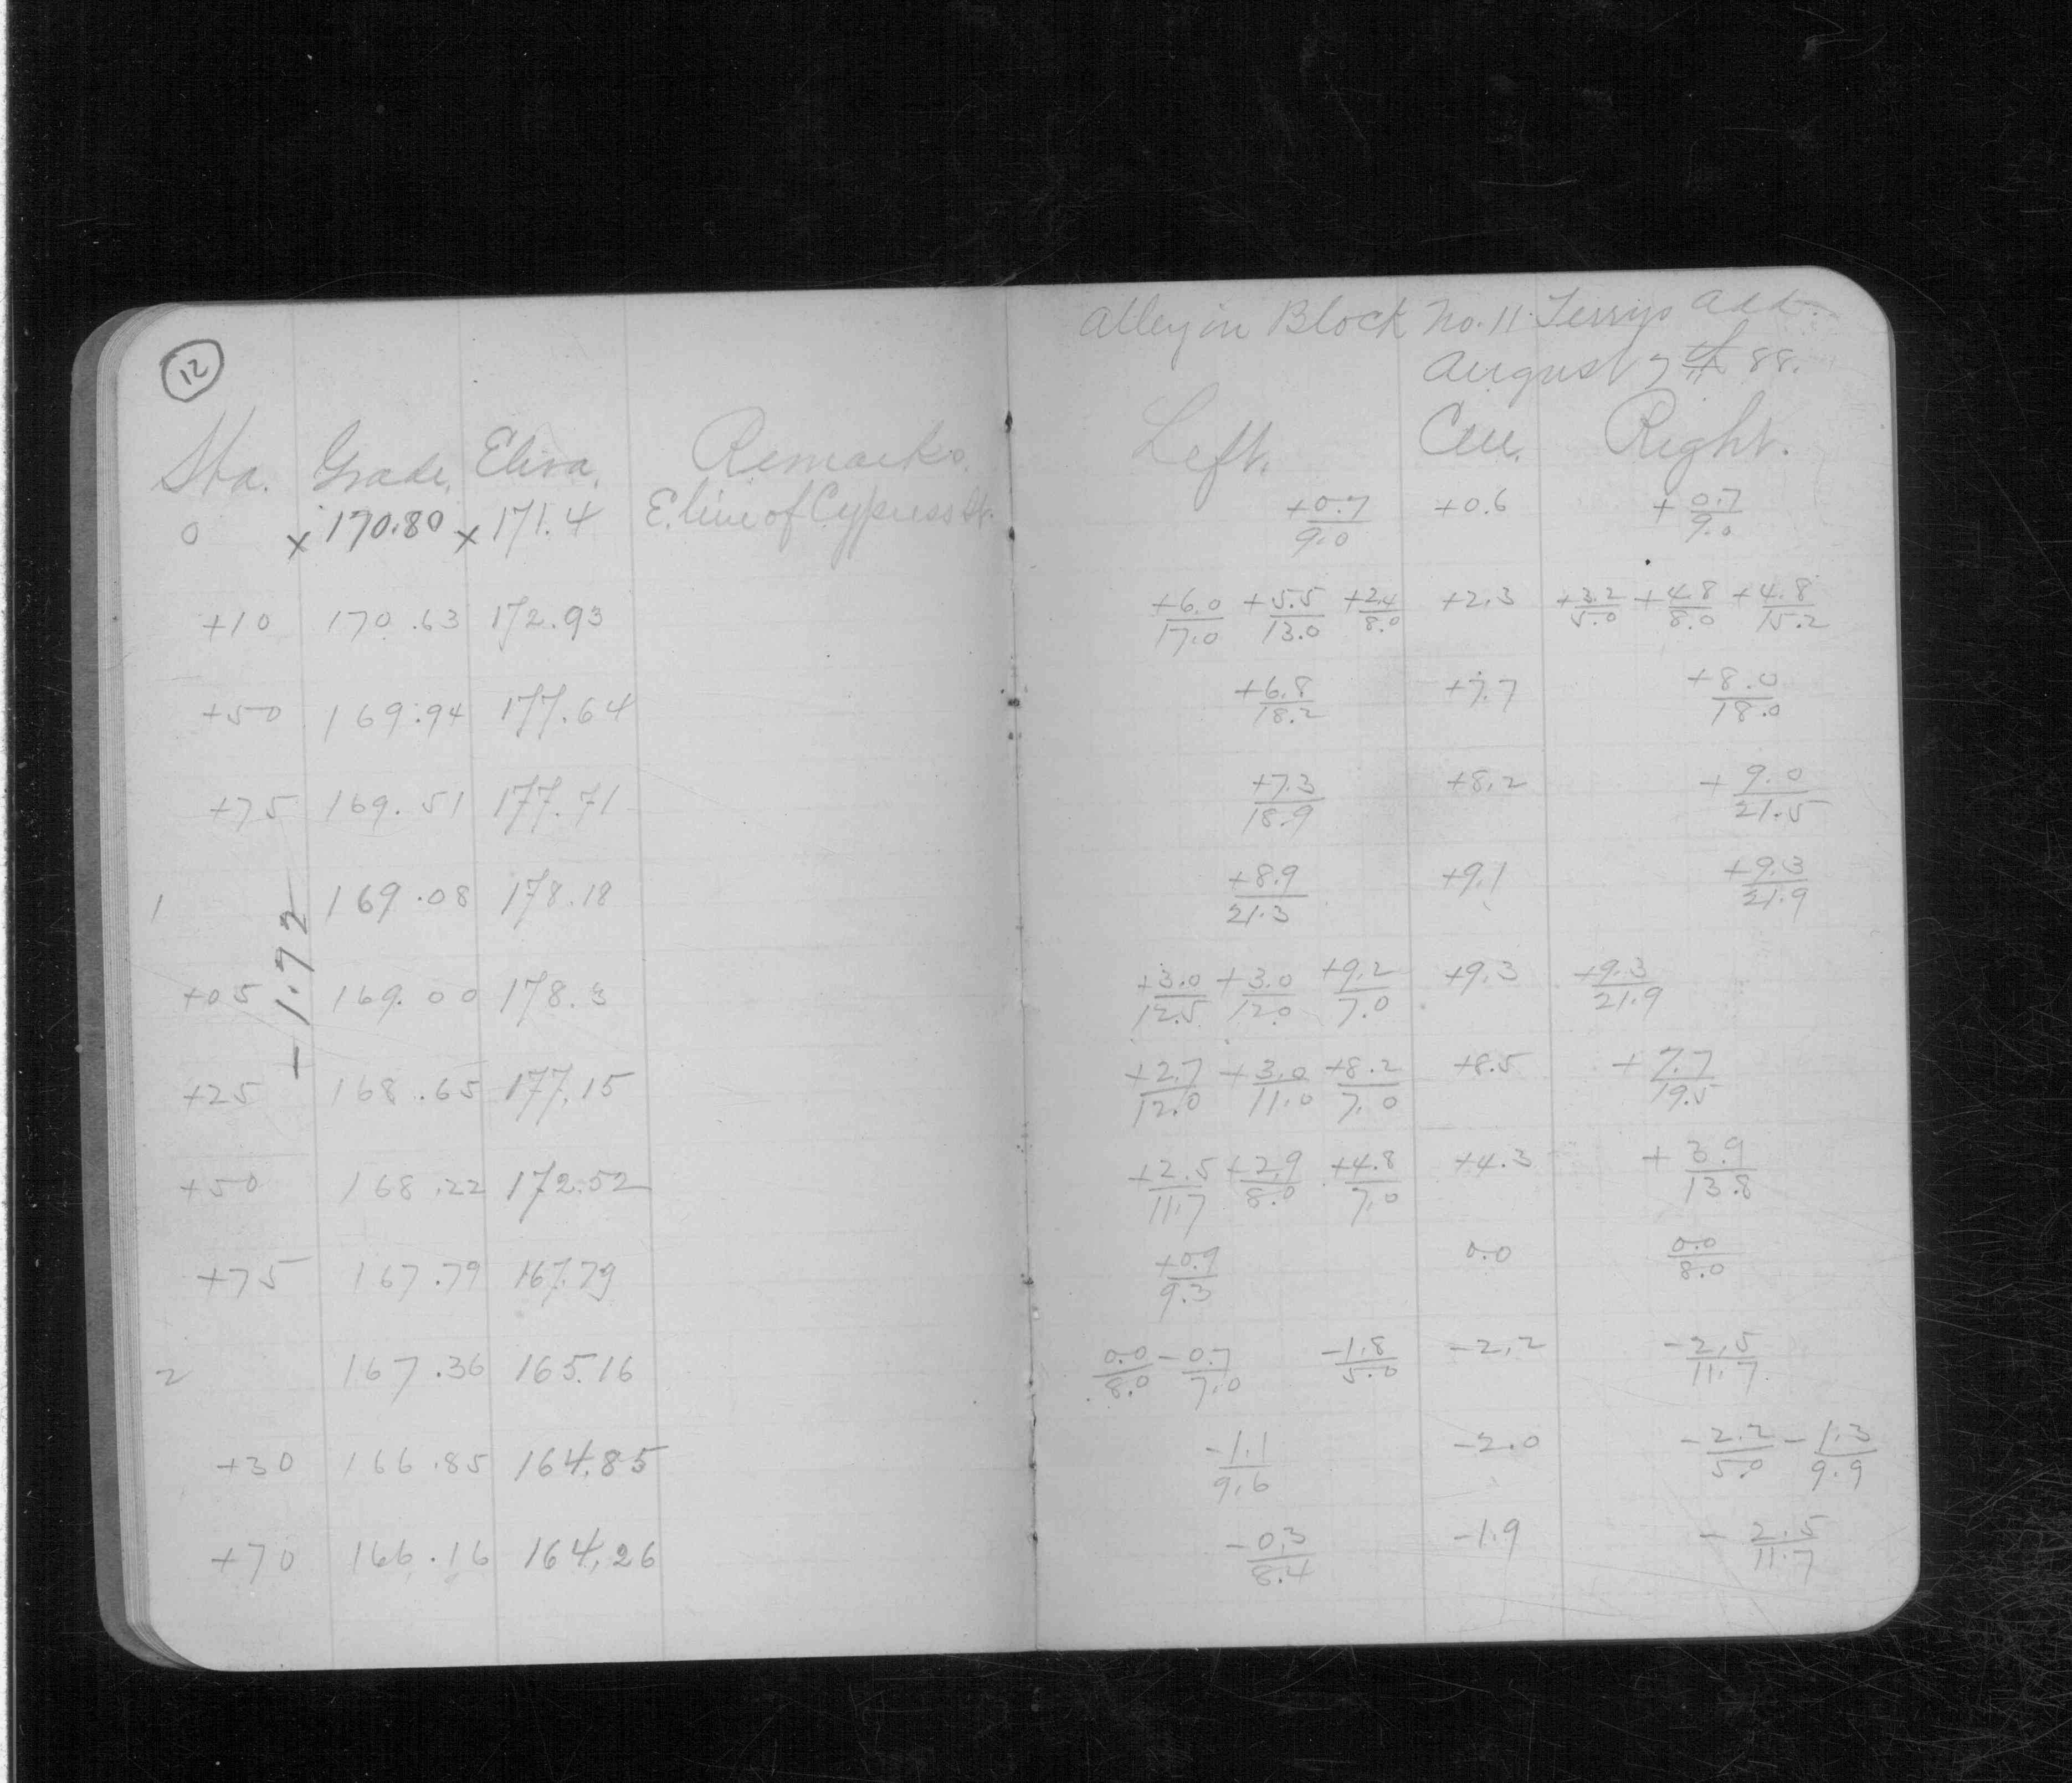 12
Alley in Block No. 11 Terrys Add.
August 7th 88.
Sta. Grade, Eleva, Remarks. Left. Cen. Right.
0 x 170.80 x 171.4 E. line of Cypress St. +0.7/9.0 +0.6 +0.7/9.0
+10 170.63 172.93 +6.0/17.0 +5.5/13.0 +2.4/8.0 +2.3 +3.2/5.0 +4.8/8.0 +4.8/15.2
+50 169.94 177.64 +6.8/18.2 +7.7 +8.0/18.0
+75 169.51 177.71 +7.3/18.9 +8.2 +9.0/21.5
1 169.08 178.18 +8.9/21.3 +9.1 +9.3/21.9
-1.72
+05 169.00 178.3 +3.0/12.5 +3.0/12.0 +9.2/7.0 +9.3 +9.3/21.9
+25 168.65 177.15 +2.7/12.0 +3.0/11.0 +8.2/7.0 +8.5 +7.7/19.5
+50 168.22 172.52 +2.5/11.7 +2.9/8.0 +4.8/7.0 +4.3 +3.9/13.8
+75 167.79 167.79 +0.9/9.3 0.0 0.0/8.0
2 167.36 165.16 0.0/8.0 -0.7/7.0 -1.8/5.0 -2.2 -2.5/11.7
+30 166.85 164.85 -1.1/9.6 -2.0 -2.2/5.0 -1.3/9.9
+70 166.16 164.26 -0.3/8.4 -1.9 -2.5/11.7